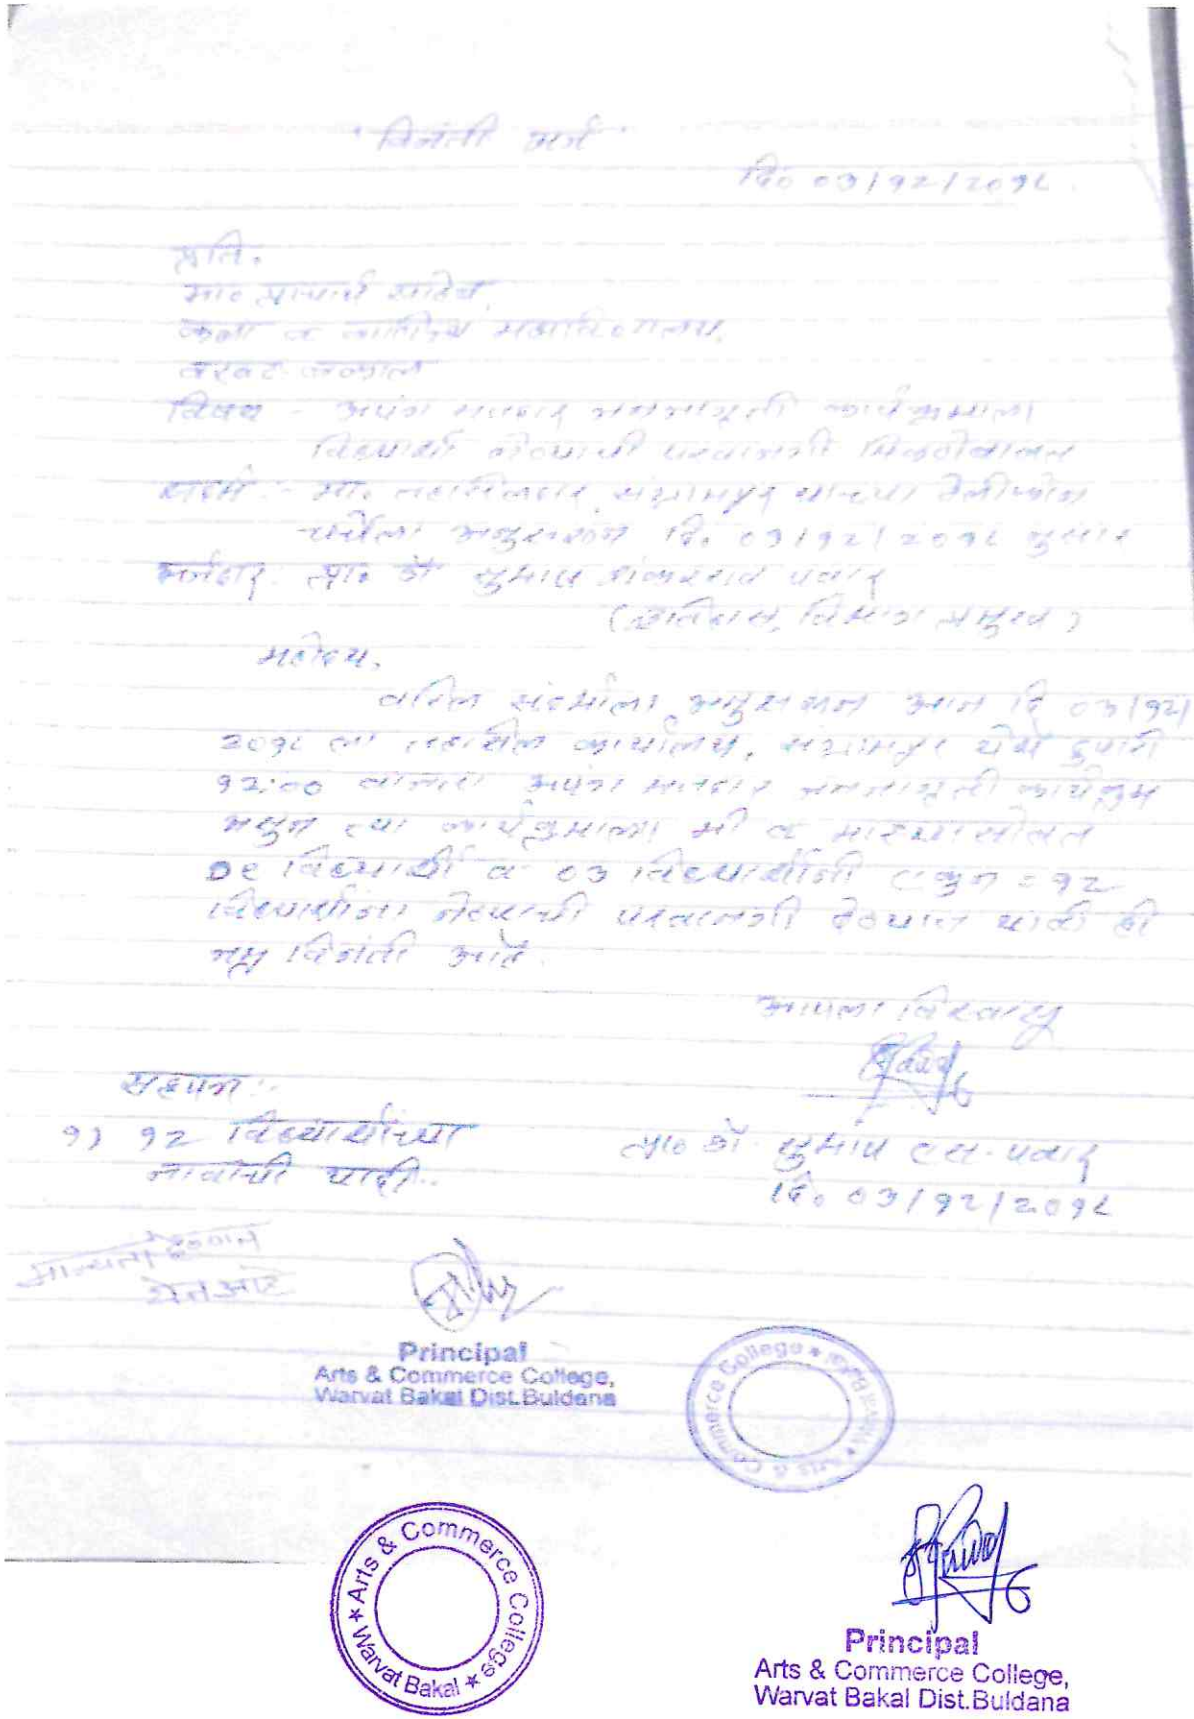 " विनंती अर्ज "
दि० ०३/१२/२०१८
प्रति,
मा० प्राचार्य साहेब,
कला व वाणिज्य महाविद्यालय,
वरवट बकाल
विषय - अपंग मतदार जनजागृती कार्यक्रमाला
विद्यार्थी नेण्याची परवानगी मिळणेबाबत
संदर्भ :- मा. तहसिलदार, संग्रामपूर यांच्या टेलीफोन
चर्चेला अनुसरून दि. ०३/१२/२०१८ नुसार
अर्जदार : प्रा. डॉ सुभाष पवार
(इतिहास, विभाग प्रमुख)
महोदय,
वरिल संदर्भाला अनुसरून आज दि ०३/१२/
२०१८ ला तहसील कार्यालय, संग्रामपूर येथे दुपारी
१२:०० वाजता अपंग मतदार जनजागृती कार्यक्रम
असुन त्या कार्यक्रमाला मी व माझ्यासोबत
०९ विद्यार्थी व ०३ विद्यार्थीनी एकुन = १२
विद्यार्थ्यांना नेण्याची परवानगी देण्यात यावी ही
नम्र विनंती आहे.
आपला विश्वासू
सहपत्र :-
१) १२ विद्यार्थ्यांच्या
नावांची यादी..
प्रा० डॉ. सुभाष एस. पवार
दि० ०३/१२/२०१८
मान्यता देण्यात
येत आहे
Principal
Arts & Commerce College,
Warvat Bakal Dist.Buldana
Arts & Commerce College ★ Warvat Bakal ★
★ Arts & Commerce College ★ Warvat Bakal
Principal
Arts & Commerce College,
Warvat Bakal Dist.Buldana